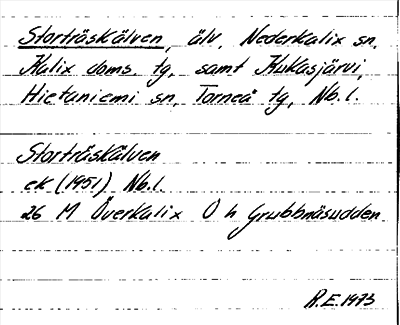 Storträskälven, älv, Nederkalix sn,
Kalix doms. tg, samt Kukasjärvi,
Hietaniemi sn, Torneå tg, Nb.l.
Storträskälven
ek (1951) Nb.l.
26 M Överkalix O h Grubbnäsudden
R.E. 1973